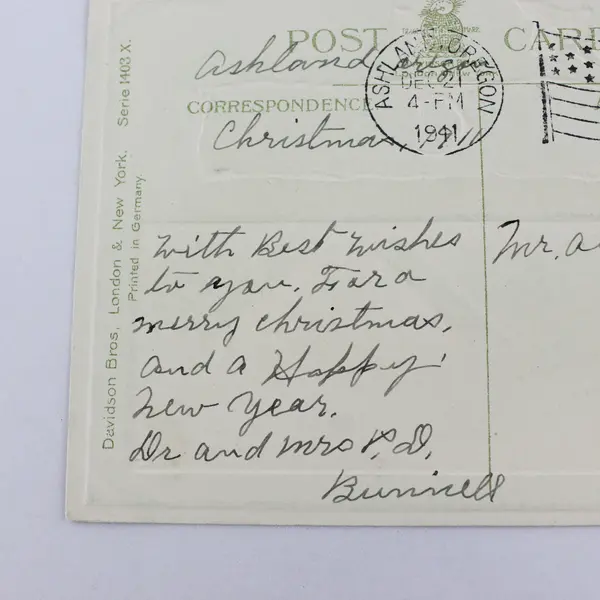 POST CARD
Ashland
ASHLAND, OREGON
DEC 21
4-PM
1941
CORRESPONDENCE
Christmas, 1911
With Best Wishes
to you. For a
merry christmas,
and a Happy
New Year.
Dr and Mrs P. D.
Bunnell
Mr. a
Davidson Bros, London & New York. Serie 1403 X.
Printed in Germany